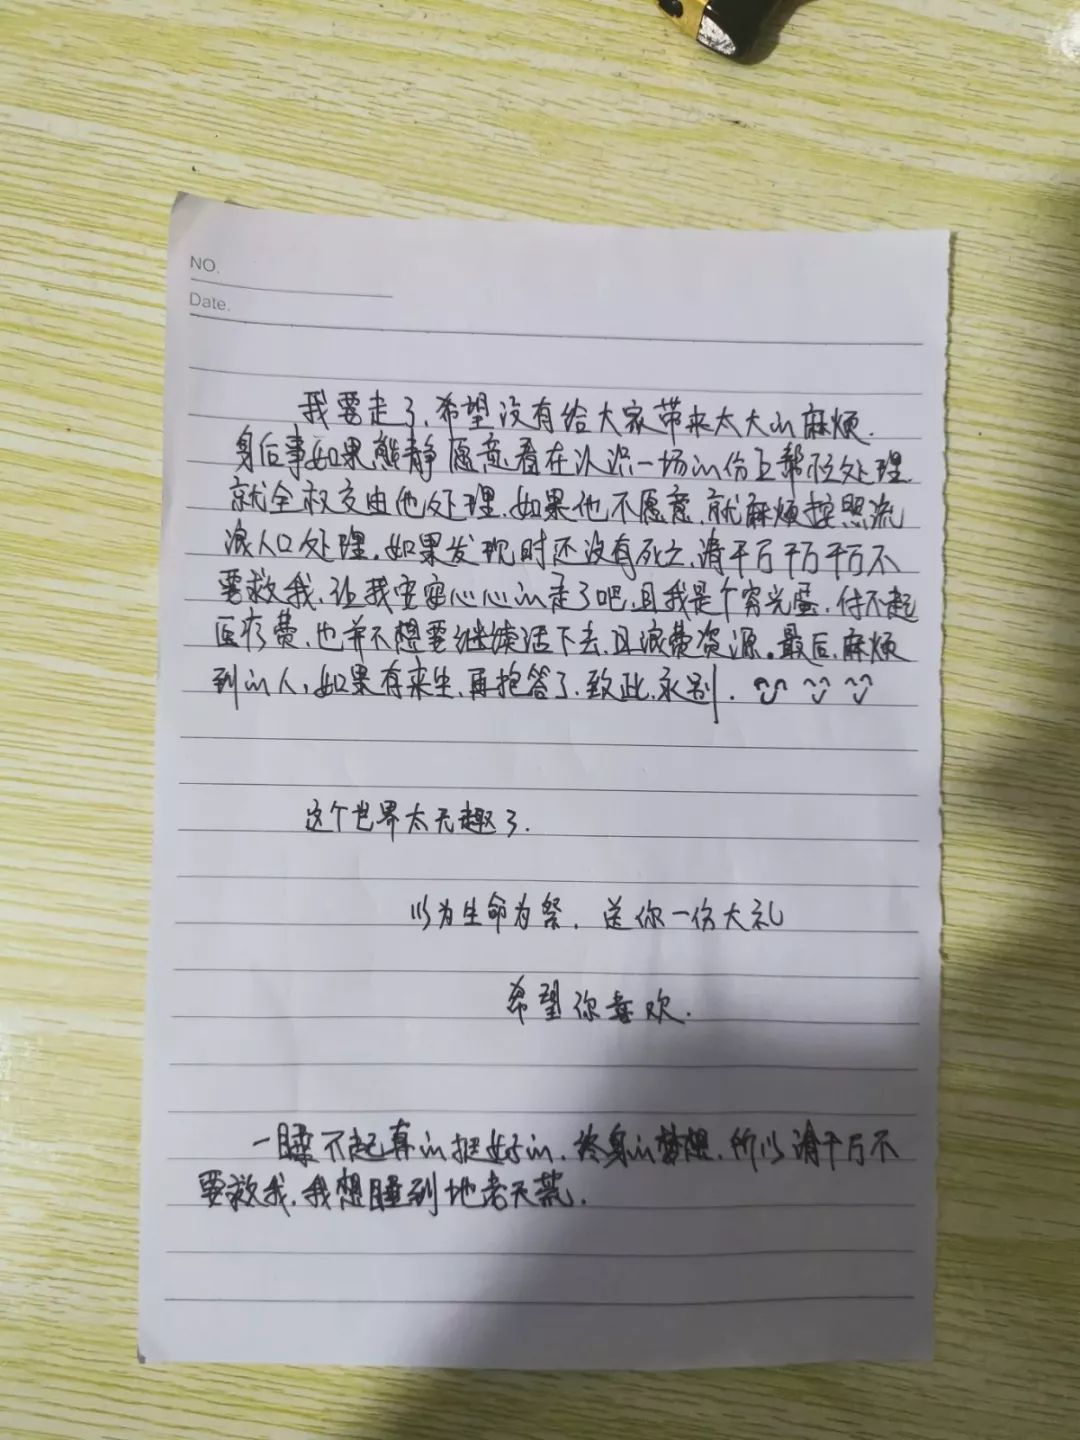 NO.
Date.
我要走了，希望没有给大家带来太大的麻烦.
身后事如果熊静愿意看在认识一场的份上帮忙处理
就全权交由他处理.如果他不愿意,就麻烦按照流
浪人口处理.如果发现时还没有死亡,请千万千万千万不
要救我,让我安安心心的走了吧,且我是个穷光蛋,付不起
医疗费,也并不想要继续活下去,且浪费资源。最后,麻烦
到的人,如果有来生,再抱答了.致此,永别.
这个世界太无趣了.
以为生命为祭,送你一份大礼
希望你喜欢.
一睡不起真的挺好的,终身的梦想,所以请千万不
要救我,我想睡到地老天荒.